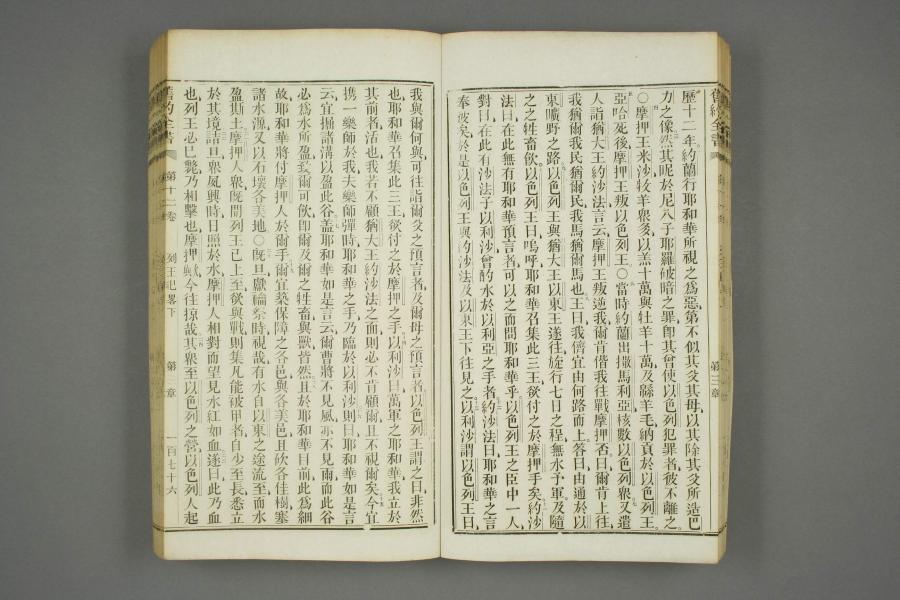 舊約全書
第三章
歷十二年約蘭行耶和華所視之為惡第不似其父其母以其除其父所造巴
力之像然其昵於尼八子耶羅破暗之罪即其曾使以色列犯罪者彼不離之
○摩押王米沙牧羊眾多以羔十萬與牡羊十萬及緜羊毛納貢於以色列王
亞哈死後摩押王叛以色列王○當時約蘭出撒馬利亞核數以色列眾又遣
人詣猶大王約沙法言云摩押王叛逆我爾肯偕我往戰摩押否曰爾肯上往
我猶爾我民猶爾民我馬猶爾馬也王曰我儕宜由何路而上答曰由通於以
東曠野之路以色列王與猶大王以東王遂往旋行七日之程無水予軍及隨
之之牲畜飲以色列王曰嗚呼耶和華召集此三王欲付之於摩押手矣約沙
法曰在此無有耶和華預言者可以之而問耶和華乎以色列王之臣中一人
對曰在此有沙法子以利沙曾酌水於以利亞之手者約沙法曰耶和華之言
奉彼矣於是以色列王與約沙法及以東王下往見之以利沙謂以色列王曰
我與爾何與可往詣爾父之預言者及爾母之預言者以色列王謂之曰非然
也耶和華召集此三王欲付之於摩押之手以利沙曰萬軍之耶和華我立於
其前者活也我若不顧猶大王約沙法之面則必不肯顧爾且不視爾矣今宜
携一樂師於我夫樂師彈時耶和華之手乃臨於以利沙則曰耶和華如是言
云宜掘諸溝以盈此谷蓋耶和華如是言云爾曹將不見風亦不見雨而此谷
必為水所盈致爾可飲即爾及爾之牲畜與獸皆然且於耶和華目前此為細
故耶和華將付摩押人於爾手爾宜築保障之各邑與各美邑且砍各佳樹塞
諸水源又以石壞各美地○既旦獻禴祭時視哉有水自以東之途流至而水
盈斯土摩押人眾既聞列王已上至欲與戰則集凡能被甲者自少至長悉立
於其境詰旦眾夙興時日照於水摩押人相對而望見水紅如血遂曰此乃血
也列王必已斃乃相擊也摩押歟今往掠哉其眾至以色列之營以色列人起
舊約全書
第十二卷
列王紀畧下
第三章
一百七十六